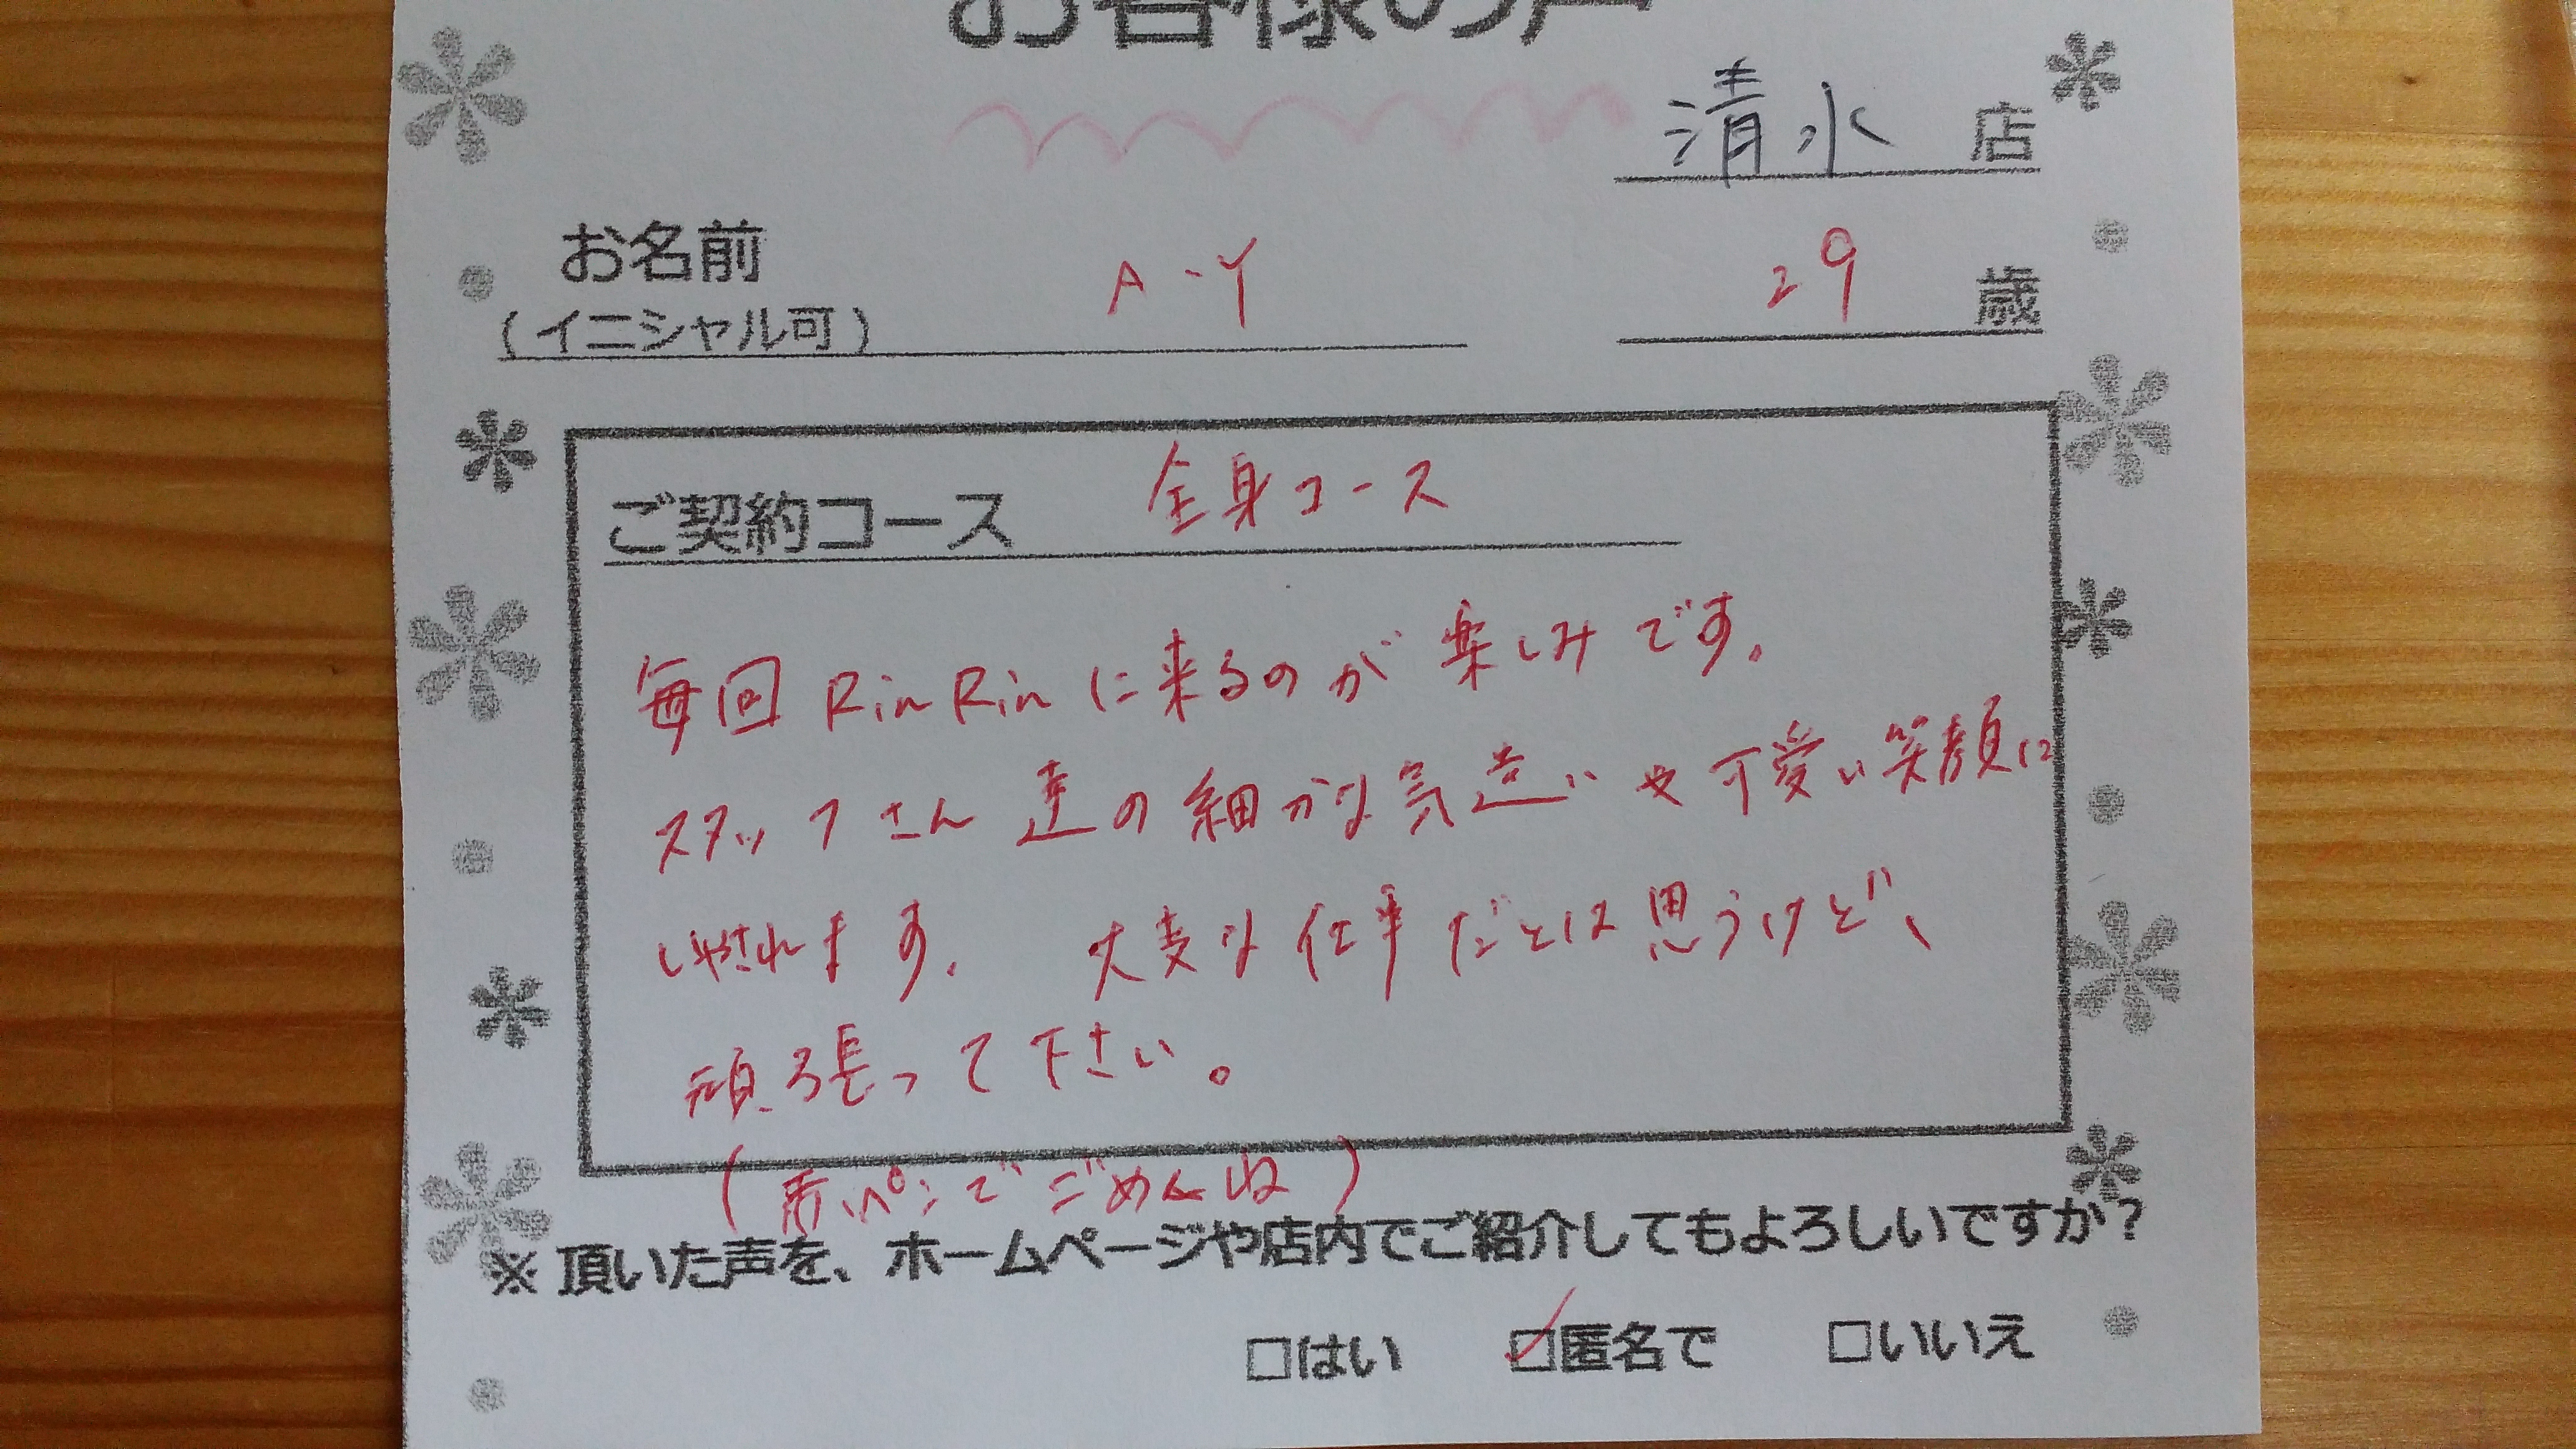 お客様の声
清水 店
お名前 A.Y 29 歳
(イニシャル可)
ご契約コース 全身コース
毎回 RinRinに来るのが楽しみです。
スタッフさん達の細かな気遣いや可愛い笑顔に
いやされます。 大変な仕事だとは思うけど、
頑張って下さい。
(赤いペンでごめんね)
※頂いた声を、ホームページや店内でご紹介してもよろしいですか?
□はい ☑匿名で □いいえ